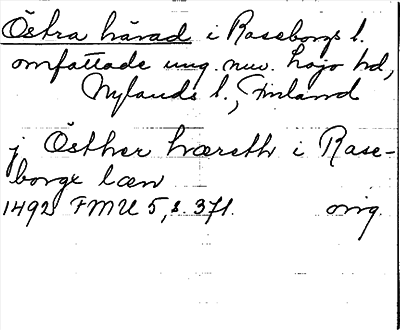 Östra härad i Raseborgs l.
omfattade ung. nuv. Lojo hd,
Nylands l., Finland
j Östher hæreth i Rase-
borgx læn
1492 FMU 5, s. 371. orig.